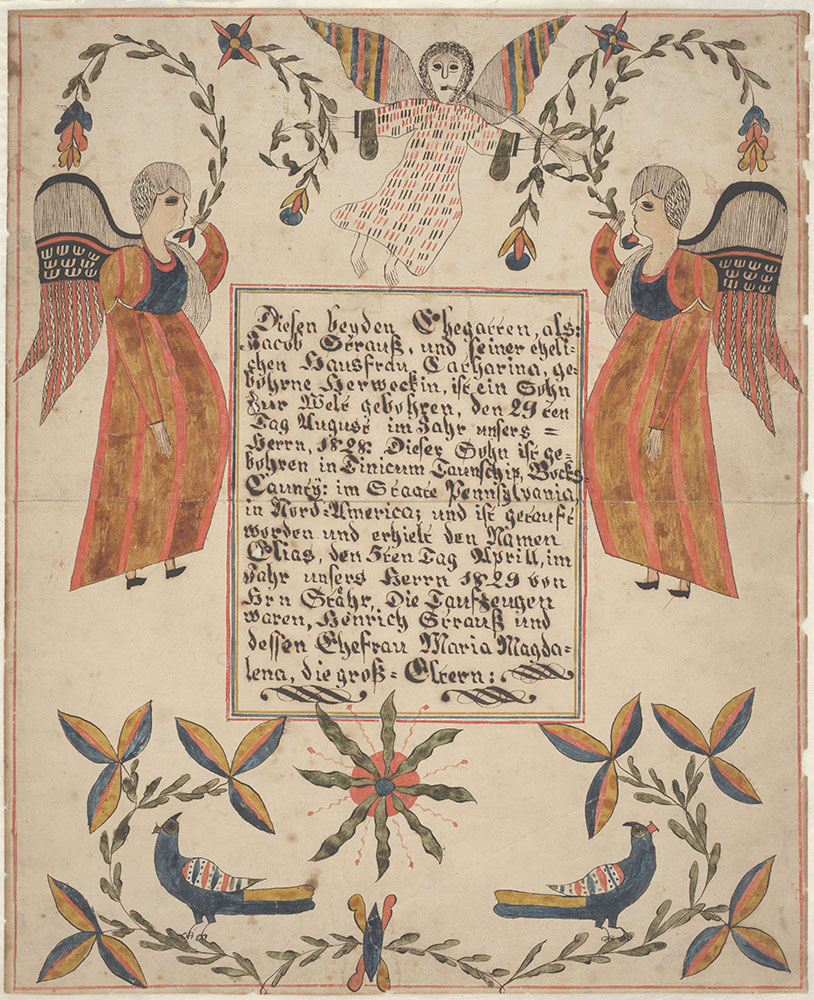 Diesen beyden Ehegatten, als:
Jacob Strauß, und seiner eheli=
chen Hausfrau Catharina, ge=
bohrne Herweckin, ist ein Sohn
zur Welt gebohren, den 29 ten
Tag August im Jahr unsers =
Herrn, 1828: Dieser Sohn ist ge=
bohren in Tinicum Taunschip, Bocks=
Caunty: im Staate Pennsylvania,
in Nord=America; und ist getauft
worden und erhielt den Namen
Elias, den 5ten Tag Aprill, im
Jahr unsers Herrn 1829 von
Hrn Stähr, Die Taufzeugen
waren, Henrich Strauß und
dessen Ehefrau Maria Magda=
lena, die groß=Eltern: